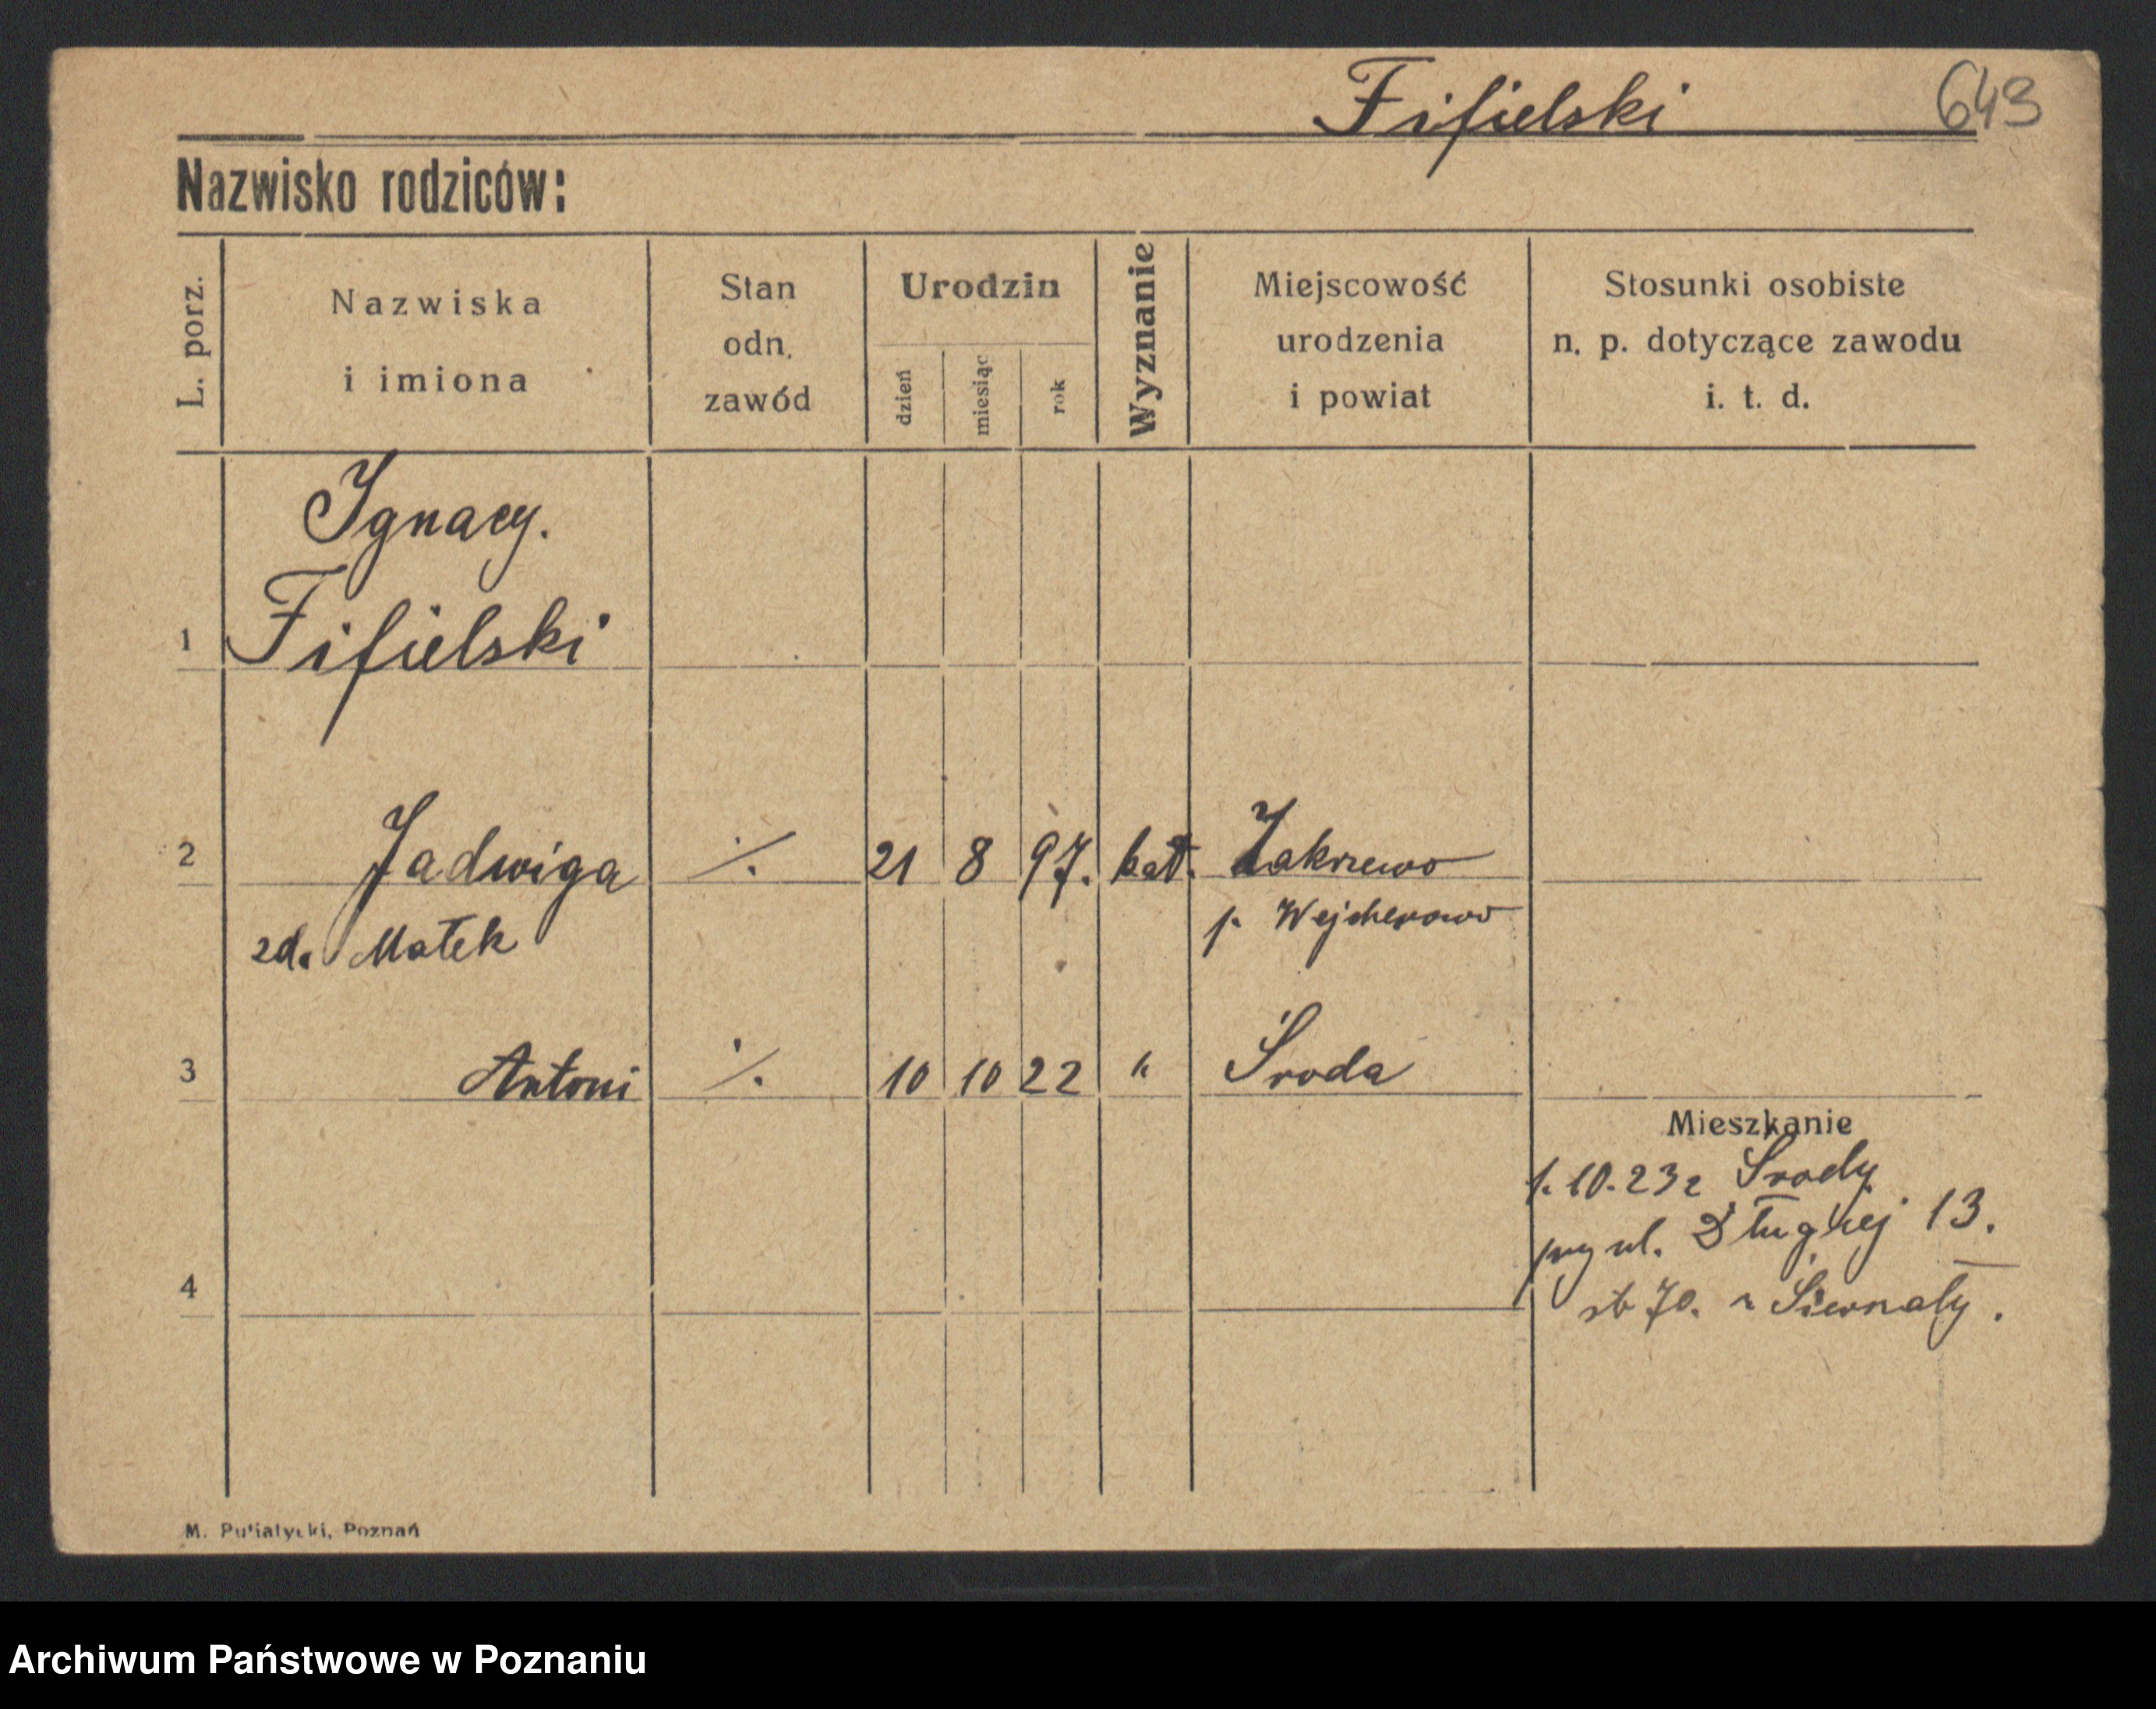 Fifielski 643
Nazwisko rodziców:
L. porz.
Nazwiska
i imiona
Stan
odn.
zawód
Urodzin
dzień
miesiąc
rok
Wyznanie
Miejscowość
urodzenia
i powiat
Stosunki osobiste
n. p. dotyczące zawodu
i. t. d.
Ignacy.
1 Fifielski
2 Jadwiga ./. 21 8 97. kat. Zakrzewo
zd. Małek p. Wejcherowo
3 Antoni ./. 10 10 22 " Środa
Mieszkanie
1.10.23 z Środy
przy ul. Długiej 13.
4
70. z
M. Putiatycki, Poznań
Archiwum Państwowe w Poznaniu